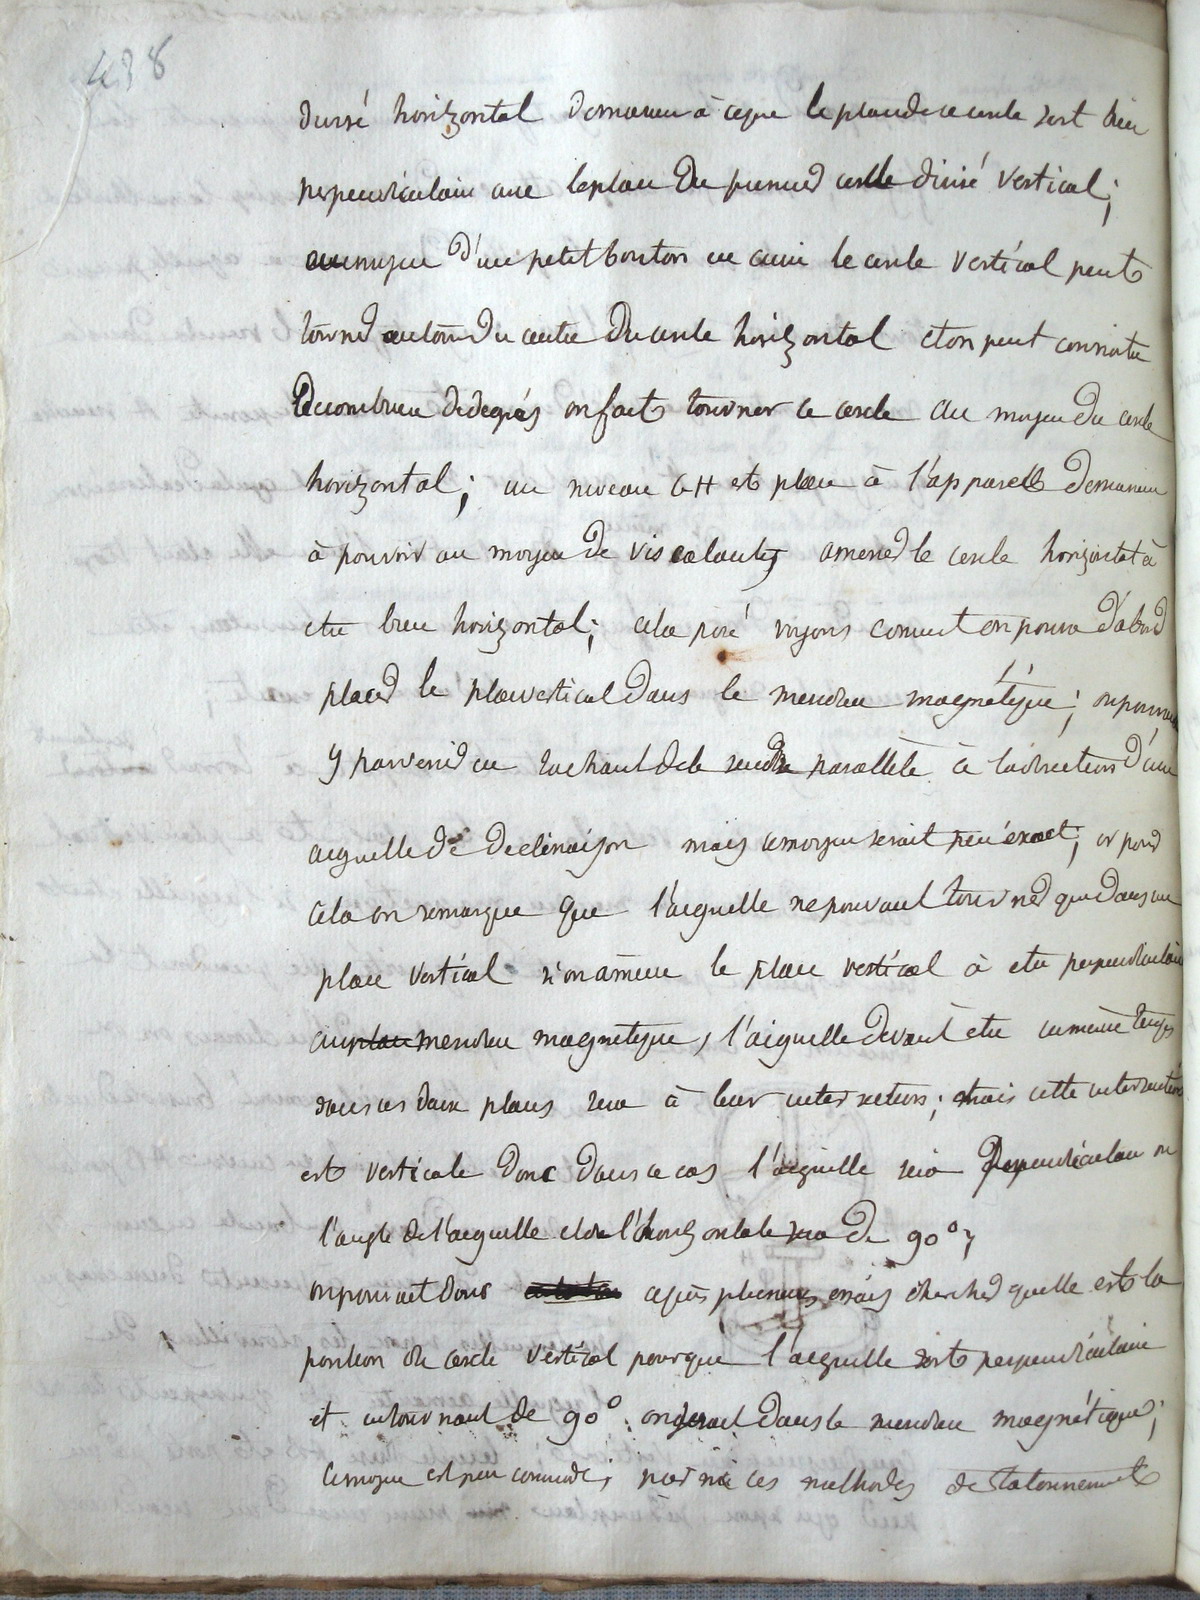 438
divisé horizontal de maniere à ce que le plan de ce cercle soit bien
perpendiculaire avec le plan du premier cercle divisé vertical;
au moyen d'un petit bouton en cuivre le cercle vertical peut
tourner autour du centre du cercle horizontal et on peut connoitre
de combien de degrés on fait tourner ce cercle au moyen du cercle
horizontal; un niveau GH est placé à l'appareil de maniere
à pouvoir au moyen de vis calantes amener le cercle horizontal à
etre bien horizontal; cela posé voyons comment on pourra d'abord
placer le plan vertical dans le meridien magnétique; on pourrait
y parvenir en tachant de le rendre parallele à la direction d'une
aiguille de declinaison mais ce moyen serait peu exact; or pour
cela on remarque que l'aiguille ne pouvant tourner que dans un
plan vertical si on amene le plan vertical à etre perpendiculaire
au plan meridien magnetique, l'aiguille devant etre en même temps
dans ces deux plans sera à leur intersection; mais cette intersection
est verticale donc dans ce cas l'aiguille sera perpendiculaire ou
l'angle de l'aiguille et de l'horizontale sera de 90°;
on pourrait donc après plusieurs essais chercher quelle est la
position du cercle vertical pour que l'aiguille soit perpendiculaire
et en tournant de 90°. on serait dans le meridien magnétique;
ce moyen est peu commode; ces methodes de tatonnement